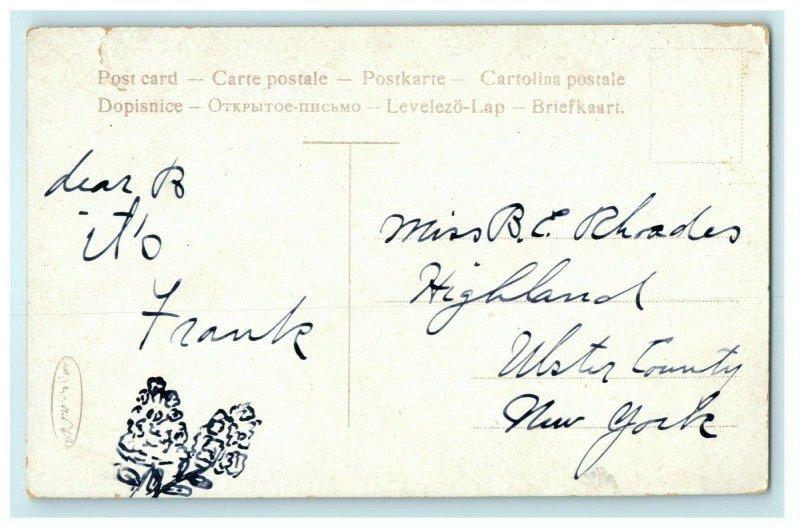 Post card — Carte postale — Postkarte — Cartolina postale
Dopisnice — Открытое-письмо — Levelező-Lap — Briefkaart.
dear B
it's
Frank
Miss B. E. Rhoades
Highland
Ulster County
New York